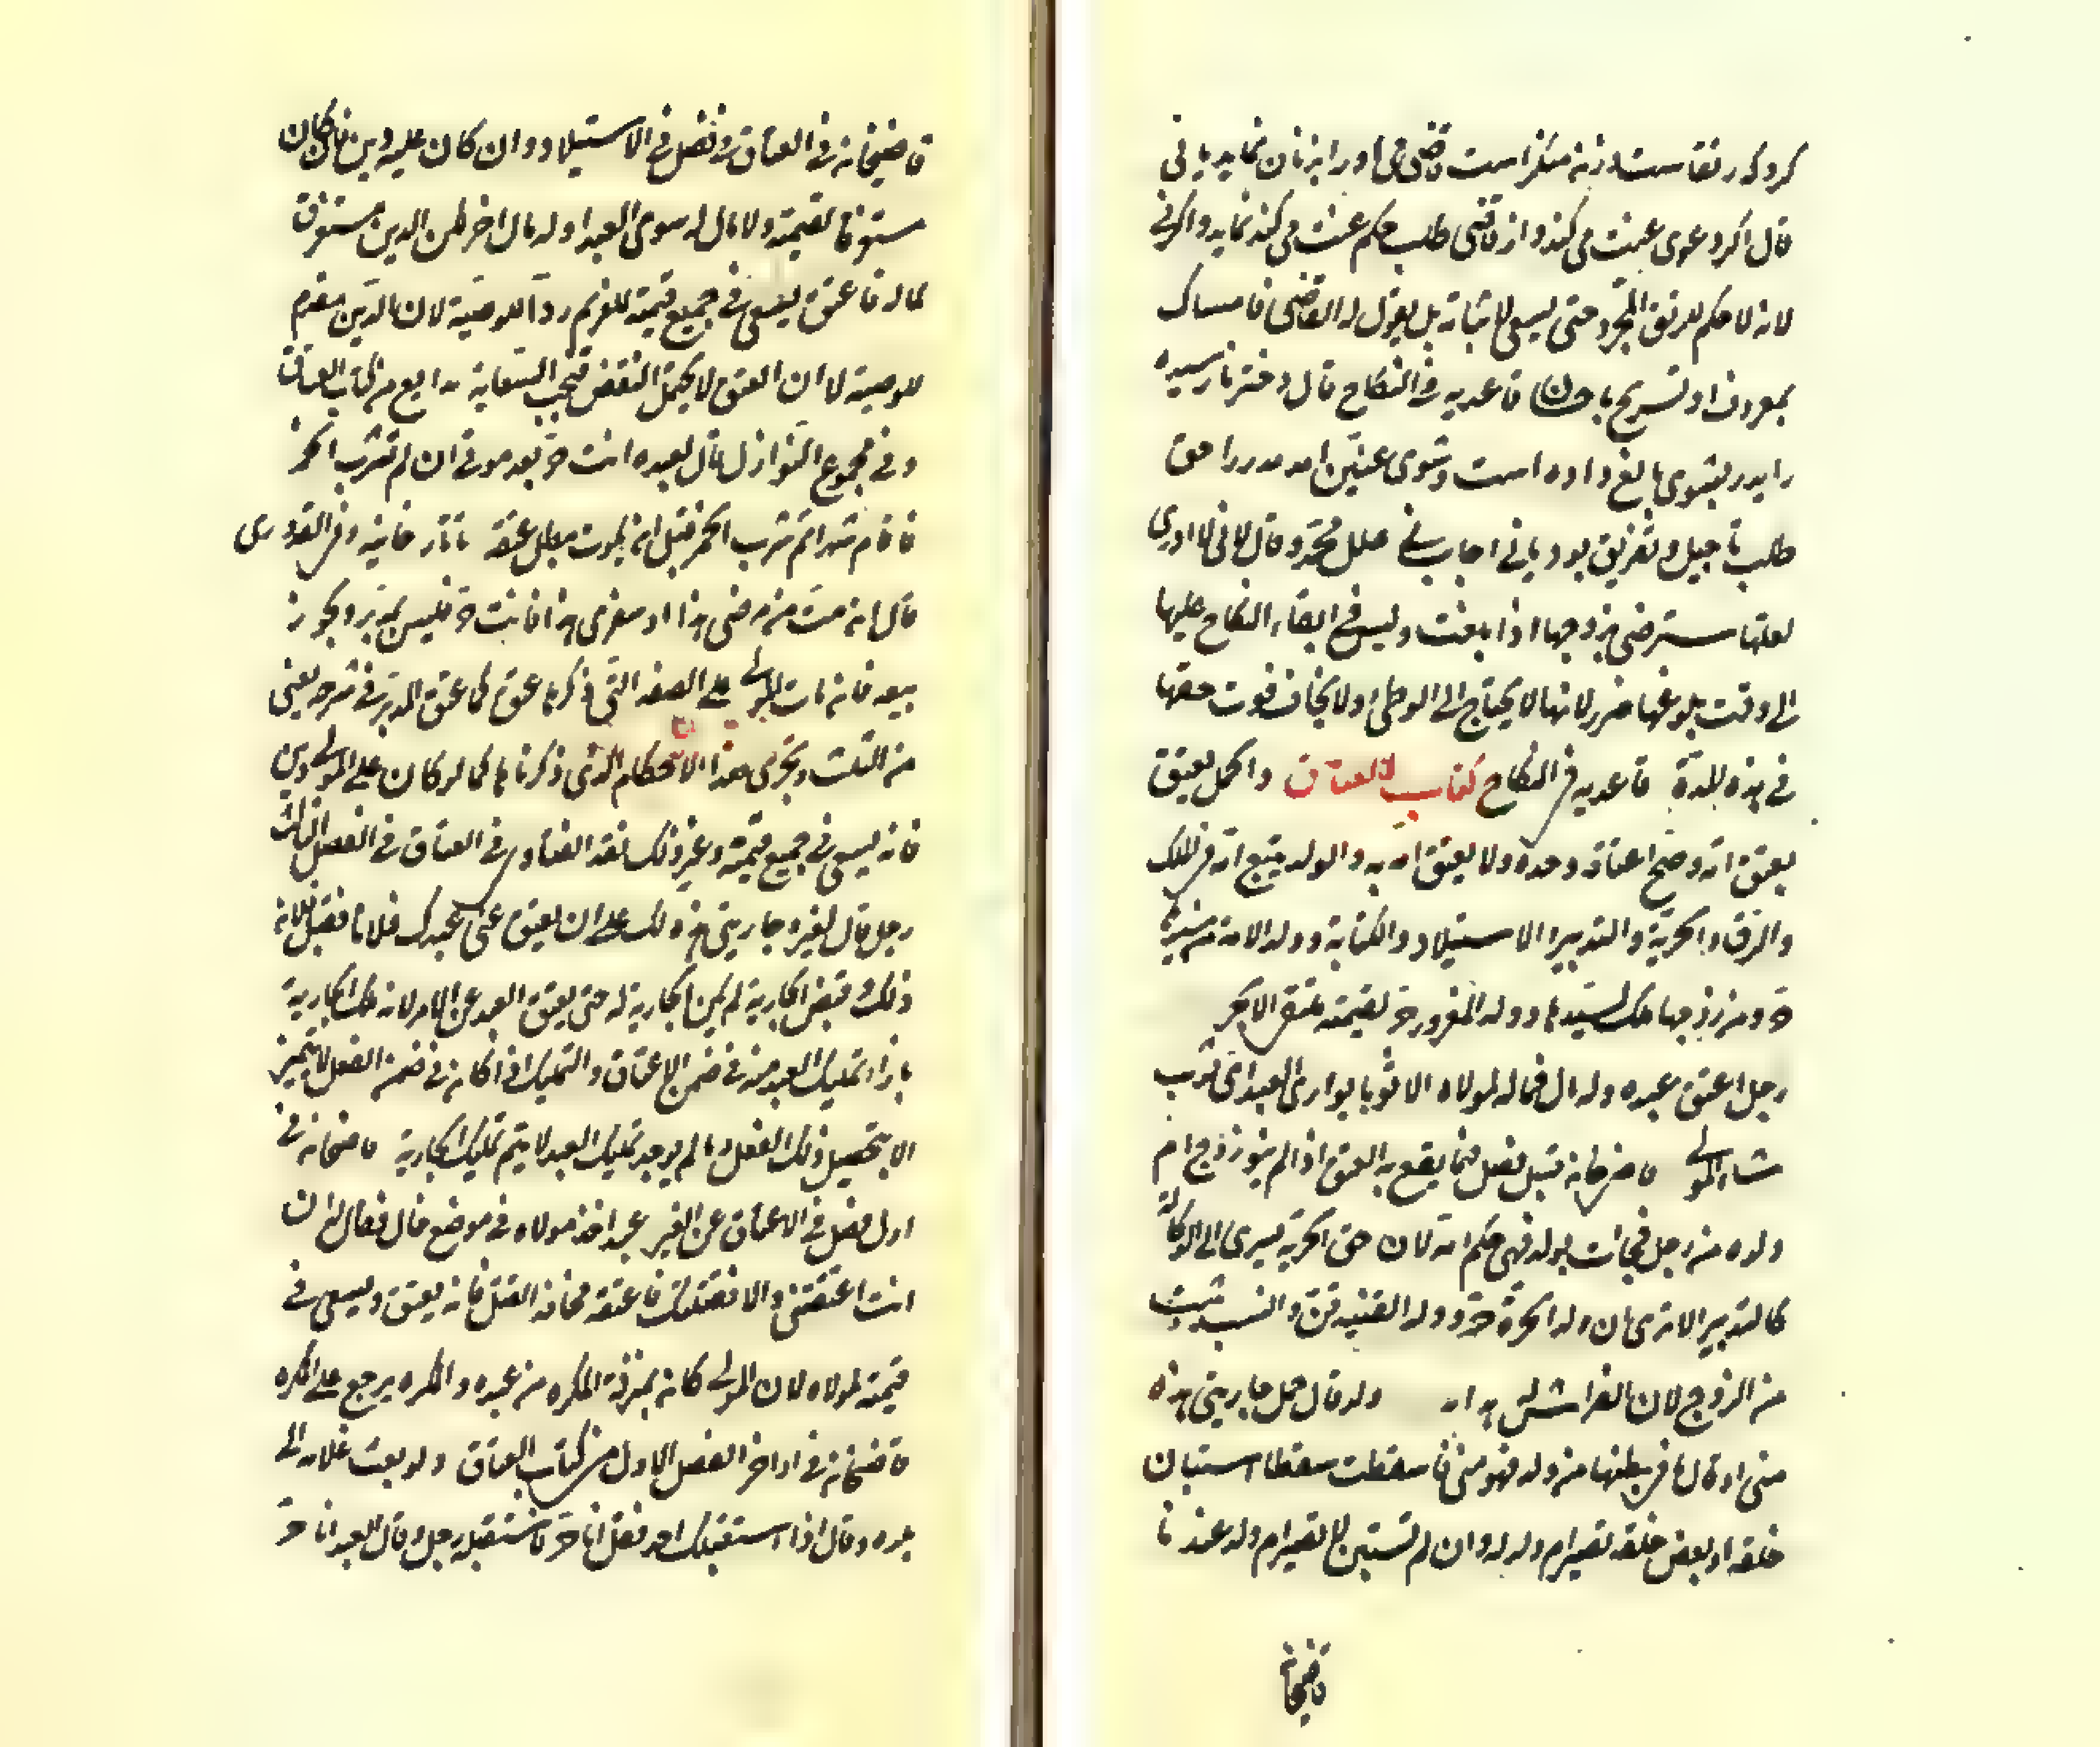 كرد كه رتقاست و زن منكر است قاضى مى او را بزنان نمايد يا نى
قال اگر دعوى عنت مى كند و از قاضى طلب حكم عنت مى كند نمايد و اگر نى
لانه لا حكم للرتق المجرد حتى يسعى لاثباته بل يقول له القاضى فامساك
بمعروف او تسريح باحسان قاعديه فى النكاح قال دختر نارسيده
را پدر بشوى بالغ داده است و شوى عنين امد پدر را حق
طلب تاجيل و تفريق بود يا نى اجاب نى علل محمد و قال لانى لا ادرى
لعلها سترضى بزوجها اذا بلغت وليس فى ابقاء النكاح عليها
الى وقت بلوغها ضرر لانها لا يحتاج الى الوطئ ولا يخاف فوت حقها
فى هذه المدة قاعديه فى النكاح كتاب العتاق والحمل يعتق
بعتق امه وصح اعتاقه وحده ولا يعتق امه به والولد يتبع امه فى الملك
والرق والحرية والتدبير والاستيلاد والكتابة وولد الامة من سيدها
حر ومن زوجها ملك لسيدها وولد المغرور حر بقيمته ملتقى الابحر
رجل اعتق عبده وله مال فماله لمولاه الا ثوبا يوارى العبد اى ثوب
شاء المولى قاضيخان قبيل فصل فيما يقع به العتق اذا لم ينو زوج ام
ولده من رجل فجاءت بولد فهو فى حكم امه لان حق الحرية يسرى الى الولد
كالتدبير الا ترى ان ولد الحرة حر وولد القنية قن والنسب يثبت
من الزوج لان الفراش له هدايه ولو قال حمل جاريتى هذه
منى او قال ما فى بطنها من ولد فهو منى فاسقطت سقطا استبان
خلقه او بعض خلقه تصير ام ولد له وان لم تستبن لا تصير ام ولد عندنا
قاضيخان
قاضيخان فى العتاق فى فصل فى الاستيلاد وان كان عليه دين فان كان
مستغرقا لقيمته ولا مال له سوى العبد او له مال اخر لكن الدين مستغرق
لماله فاعتق يسعى فى جميع قيمته للغريم ردا للوصية لان الدين مقدم
للوصية الا ان العتق لا يحتمل النقض فتجب السعاية بدايع من كتاب العتاق
وفى مجموع النوازل قال لعبده انت حر بعد موتى ان لم تشرب الخمر
فاقام شهرا ثم شرب الخمر قبل ان يموت بطل عتقه تاتارخانيه وفى القدورى
قال ان مت من مرضى هذا او سفرى هذا فانت حر فليس بمدبر ويجوز
بيعه فان مات المولى على الصفة التى ذكرناها عتق كما عتق المدبر فى شرحه يعنى
من الثلث وتجرى هذا الاحكام الذى ذكرناها كما لو كان على المولى دين
فانه يسعى فى جميع قيمته وغير ذلك نقد الفتاوى فى العتاق فى الفصل الثالث
رجل قال لغيره جاريتى هذه لك على ان يعتق عنى عبدك فلانا فقبل فلان
ذلك وقبض الجارية لم يكن الجارية له حتى يعتق العبد عن الامر لانه ملك الجارية
بازاء تمليك العبد منه فى ضمن الاعتاق والتمليك اذا كان فى ضمن الفعل لا يتميز
الا بتحصيل ذلك الفعل وما لم يوجد تمليك العبد لا يتم تمليك الجارية قاضيخان فى
اول فصل فى الاعتاق عن الغير عبد اخذ مولاه فى موضع خال فقال له ان
انت اعتقتنى والا قتلتك فاعتقه مخافة القتل فانه يعتق ويسعى فى
قيمته لمولاه لان المولى كان بمنزلة المكره من عبده والمكره يرجع على المكره
قاضيخان فى اواخر الفصل الاول من كتاب العتاق ولو بعث غلامه الى
بلده وقال اذا استقبلك احد فقل انا حر فاستقبله رجل وقال العبد انا حر